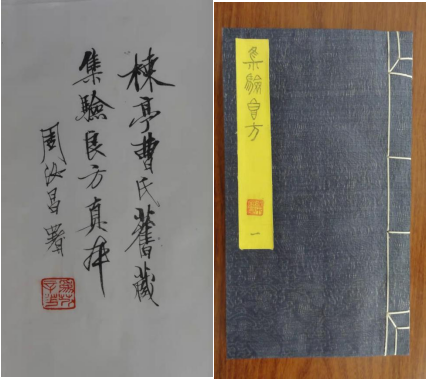 楝亭曹氏舊藏
集驗良方真本
周汝昌署
集驗良方
一